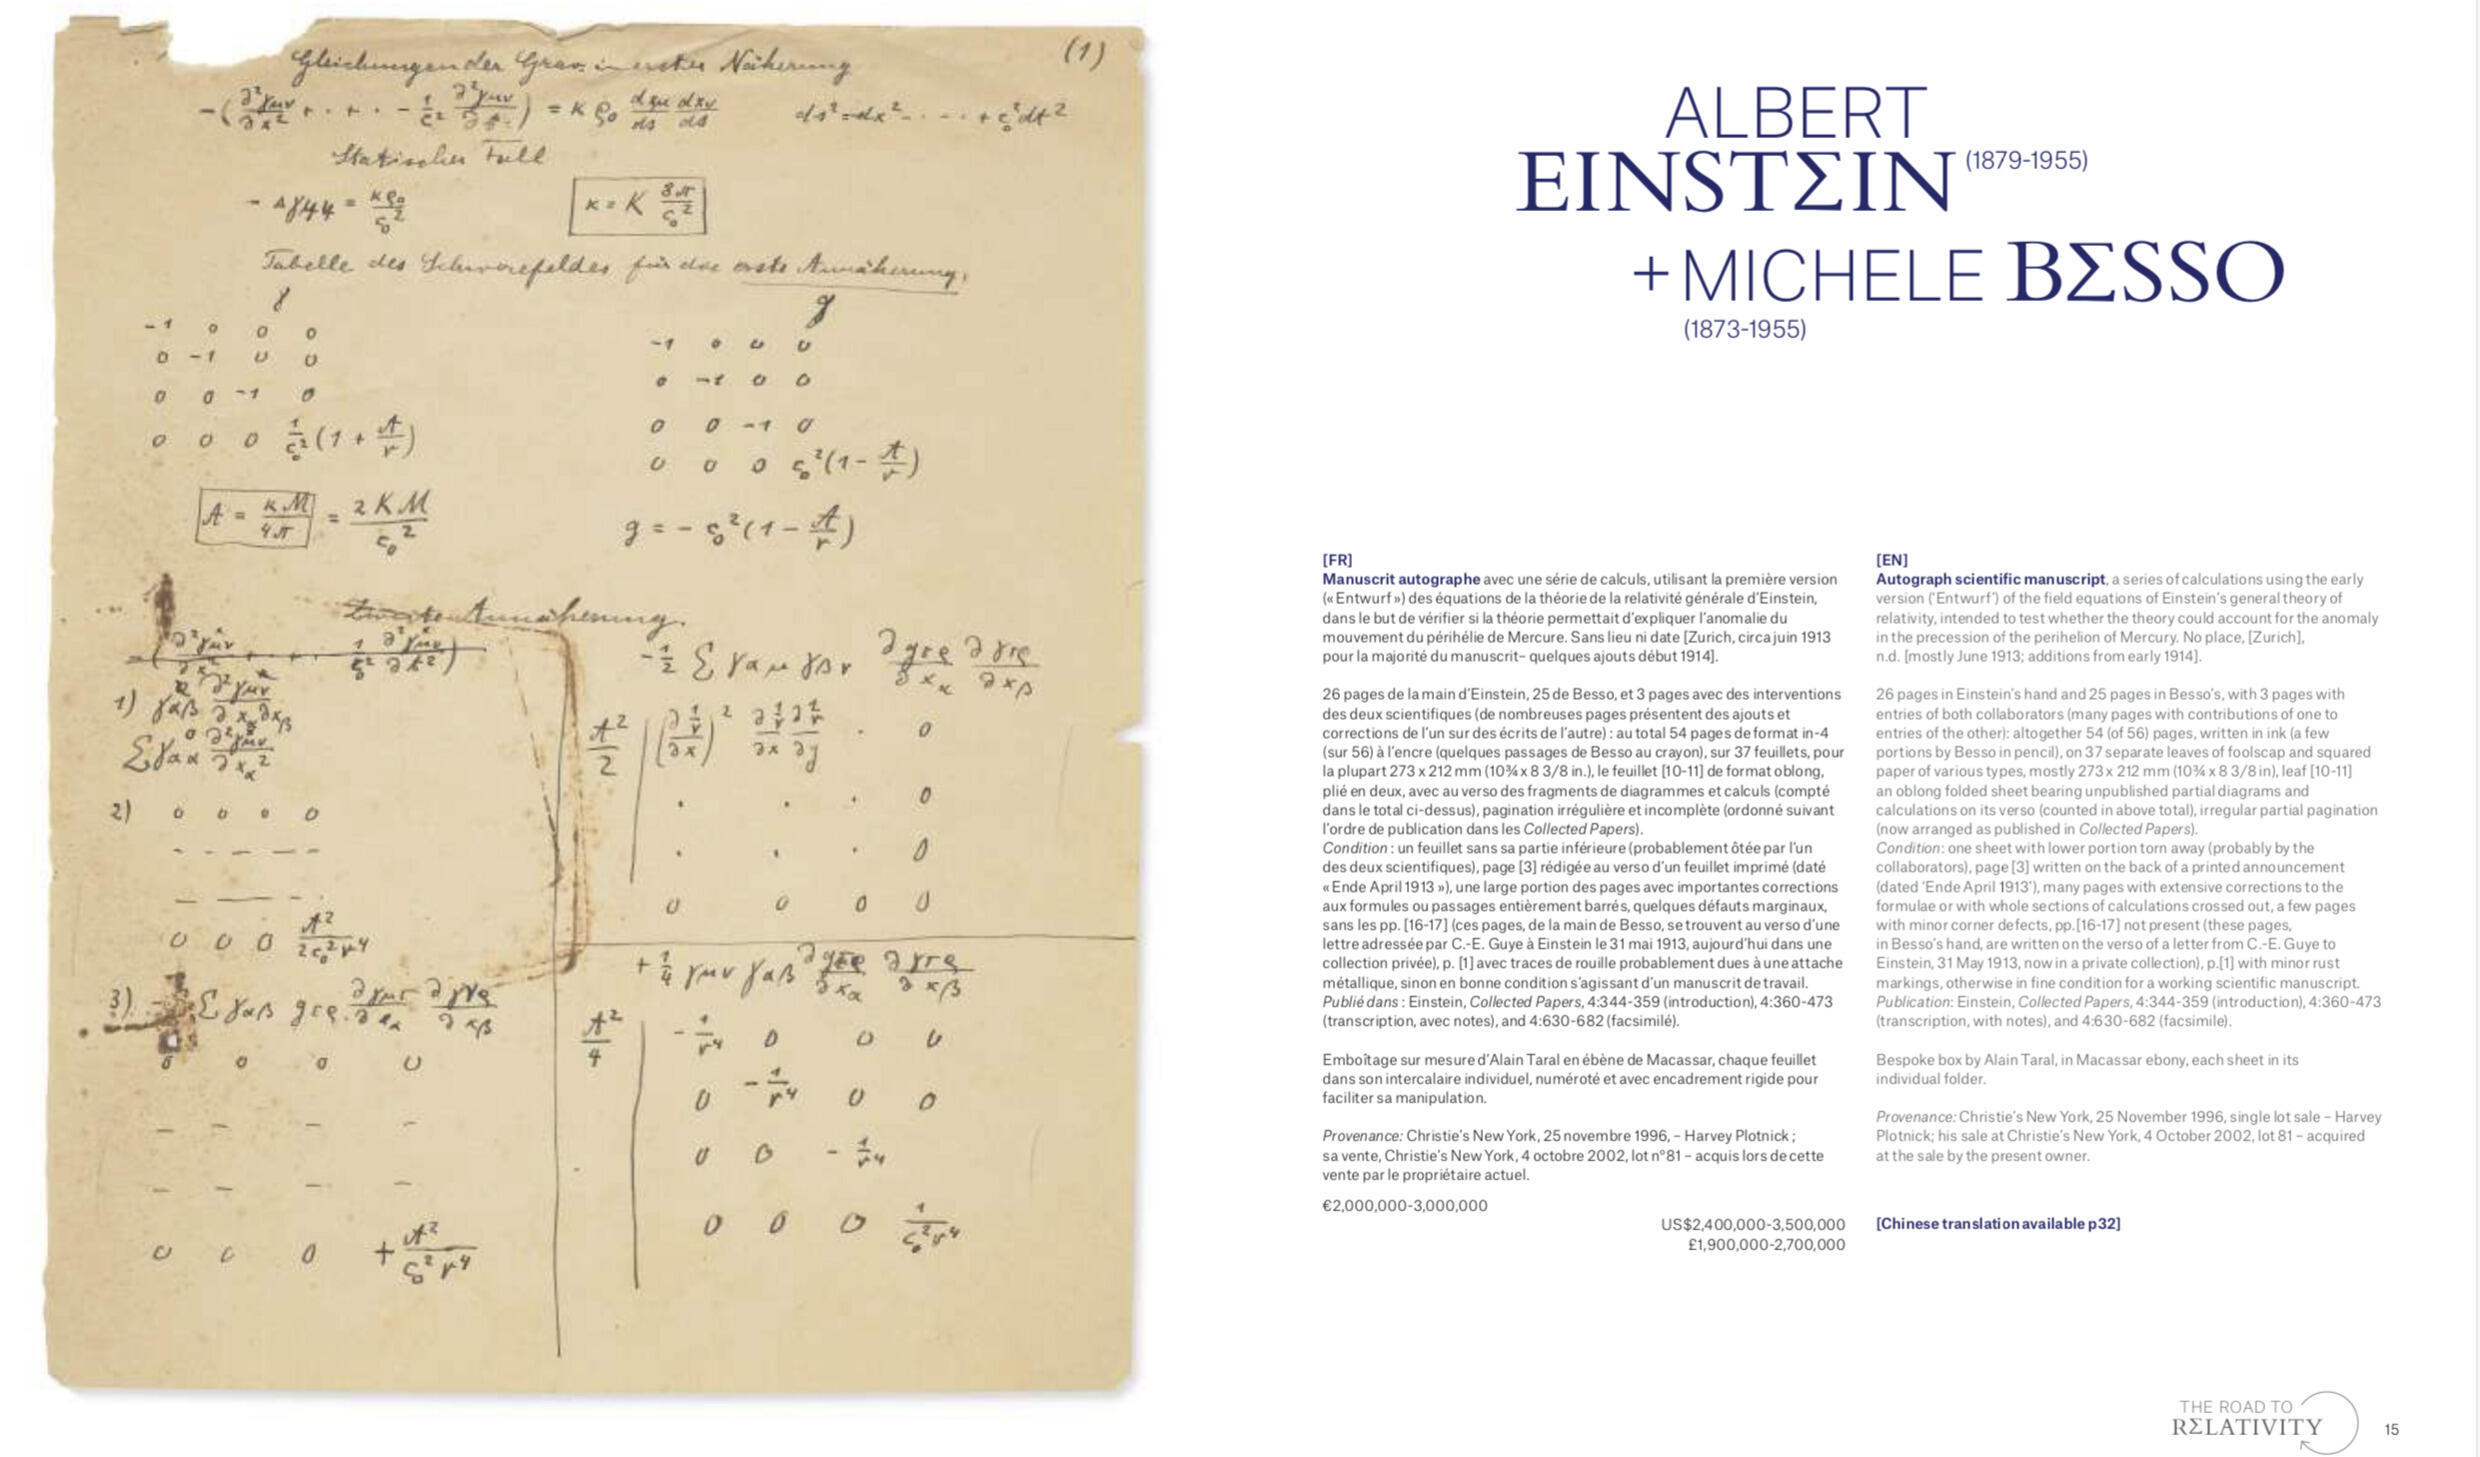 (1)
Gleichungen der Grav. in erster Näherung
−(∂²γμν/∂x² + · + · − 1/c² ∂²γμν/∂t²) = κ ρ₀ dxμ/ds dxν/ds ds² = −dx² − · · · + c₀²dt²
Statischer Fall
− Δγ44 = κρ₀/c₀² κ = K 8π/c₀²
Tabelle des Schwerefeldes für die erste Annäherung.
γ g
-1 0 0 0
0 -1 0 0
0 0 -1 0
0 0 0 1/c₀² (1 + A/r)
-1 0 0 0
0 -1 0 0
0 0 -1 0
0 0 0 c₀²(1 − A/r)
A = κM/4π = 2KM/c₀² g = − c₀²(1 − A/r)
Zweite Annäherung.
1) γαβ ∂²γμν/∂xα∂xβ
Σγαα ∂²γμν/∂xα²
2) 0 0 0 0
- - - - -
— — — ·
0 0 0 A²/2c₀²r⁴
3) Σ γαβ gτρ ∂γμτ/∂xα ∂γνρ/∂xβ
0 0 0 0
— — — —
— — — —
0 0 0 + A²/c₀²r⁴
−1/2 Σ γαμ γβν ∂gτρ/∂xα ∂γτρ/∂xβ
A²/2 (∂ 1/r/∂x)² ∂ 1/r/∂x ∂ 1/r/∂y · 0
· · · 0
· · · 0
0 0 0 0
+ 1/4 γμν γαβ ∂gτρ/∂xα ∂γτρ/∂xβ
A²/4 −1/r⁴ 0 0 0
0 −1/r⁴ 0 0
0 0 −1/r⁴
0 0 0 1/c₀²r⁴
ALBERT
EINSTΣIN (1879-1955)
+ MICHELE BΣSSO
(1873-1955)
[FR]
Manuscrit autographe avec une série de calculs, utilisant la première version
(« Entwurf ») des équations de la théorie de la relativité générale d'Einstein,
dans le but de vérifier si la théorie permettait d'expliquer l'anomalie du
mouvement du périhélie de Mercure. Sans lieu ni date [Zurich, circa juin 1913
pour la majorité du manuscrit– quelques ajouts début 1914].
26 pages de la main d'Einstein, 25 de Besso, et 3 pages avec des interventions
des deux scientifiques (de nombreuses pages présentent des ajouts et
corrections de l'un sur des écrits de l'autre) : au total 54 pages de format in-4
(sur 56) à l'encre (quelques passages de Besso au crayon), sur 37 feuillets, pour
la plupart 273 x 212 mm (10¾ x 8 3/8 in.), le feuillet [10-11] de format oblong,
plié en deux, avec au verso des fragments de diagrammes et calculs (compté
dans le total ci-dessus), pagination irrégulière et incomplète (ordonné suivant
l'ordre de publication dans les Collected Papers).
Condition : un feuillet sans sa partie inférieure (probablement ôtée par l'un
des deux scientifiques), page [3] rédigée au verso d'un feuillet imprimé (daté
« Ende April 1913 »), une large portion des pages avec importantes corrections
aux formules ou passages entièrement barrés, quelques défauts marginaux,
sans les pp. [16-17] (ces pages, de la main de Besso, se trouvent au verso d'une
lettre adressée par C.-E. Guye à Einstein le 31 mai 1913, aujourd'hui dans une
collection privée), p. [1] avec traces de rouille probablement dues à une attache
métallique, sinon en bonne condition s'agissant d'un manuscrit de travail.
Publié dans : Einstein, Collected Papers, 4:344-359 (introduction), 4:360-473
(transcription, avec notes), and 4:630-682 (facsimilé).
Emboîtage sur mesure d'Alain Taral en ébène de Macassar, chaque feuillet
dans son intercalaire individuel, numéroté et avec encadrement rigide pour
faciliter sa manipulation.
Provenance: Christie's New York, 25 novembre 1996, – Harvey Plotnick ;
sa vente, Christie's New York, 4 octobre 2002, lot n°81 – acquis lors de cette
vente par le propriétaire actuel.
€2,000,000-3,000,000
US$2,400,000-3,500,000
£1,900,000-2,700,000
[EN]
Autograph scientific manuscript, a series of calculations using the early
version ('Entwurf') of the field equations of Einstein's general theory of
relativity, intended to test whether the theory could account for the anomaly
in the precession of the perihelion of Mercury. No place, [Zurich],
n.d. [mostly June 1913; additions from early 1914].
26 pages in Einstein's hand and 25 pages in Besso's, with 3 pages with
entries of both collaborators (many pages with contributions of one to
entries of the other): altogether 54 (of 56) pages, written in ink (a few
portions by Besso in pencil), on 37 separate leaves of foolscap and squared
paper of various types, mostly 273 x 212 mm (10¾ x 8 3/8 in), leaf [10-11]
an oblong folded sheet bearing unpublished partial diagrams and
calculations on its verso (counted in above total), irregular partial pagination
(now arranged as published in Collected Papers).
Condition: one sheet with lower portion torn away (probably by the
collaborators), page [3] written on the back of a printed announcement
(dated 'Ende April 1913'), many pages with extensive corrections to the
formulae or with whole sections of calculations crossed out, a few pages
with minor corner defects, pp.[16-17] not present (these pages,
in Besso's hand, are written on the verso of a letter from C.-E. Guye to
Einstein, 31 May 1913, now in a private collection), p.[1] with minor rust
markings, otherwise in fine condition for a working scientific manuscript.
Publication: Einstein, Collected Papers, 4:344-359 (introduction), 4:360-473
(transcription, with notes), and 4:630-682 (facsimile).
Bespoke box by Alain Taral, in Macassar ebony, each sheet in its
individual folder.
Provenance: Christie's New York, 25 November 1996, single lot sale – Harvey
Plotnick; his sale at Christie's New York, 4 October 2002, lot 81 – acquired
at the sale by the present owner.
[Chinese translation available p32]
THE ROAD TO
RΣLATIVITY
15